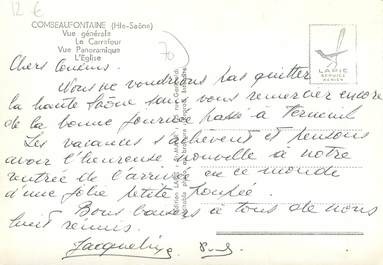 12 €
COMBEAUFONTAINE (Hte-Saône)
Vue générale
Le Carrefour
Vue Panoramique
L'Eglise
70
LAPIE
SERVICE
AERIEN
Chers Cousins.
Nous ne voudrions pas quitter
la haute Saône sans vous remercier encore
de la bonne journée passé à
Les vacances s'achèvent et pensons
avoir l'heureuse nouvelle à notre
rentrée de l'arrivée en ce monde
d'une jolie petite poupée.
Bons baisers à tous de nous
huit réunis.
Jacqueline